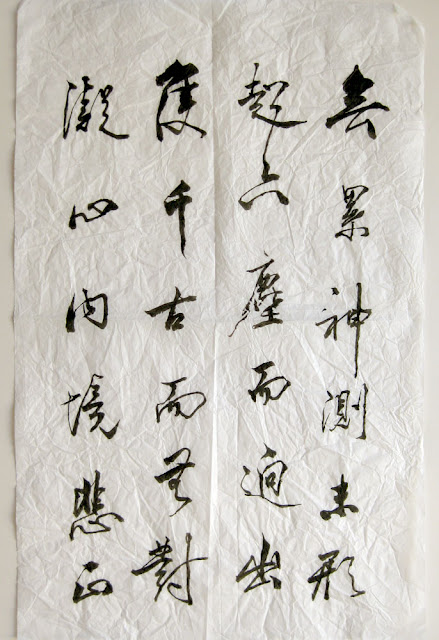 無累神測未形
超六塵而迥出
隻千古而無對
凝心內境悲正